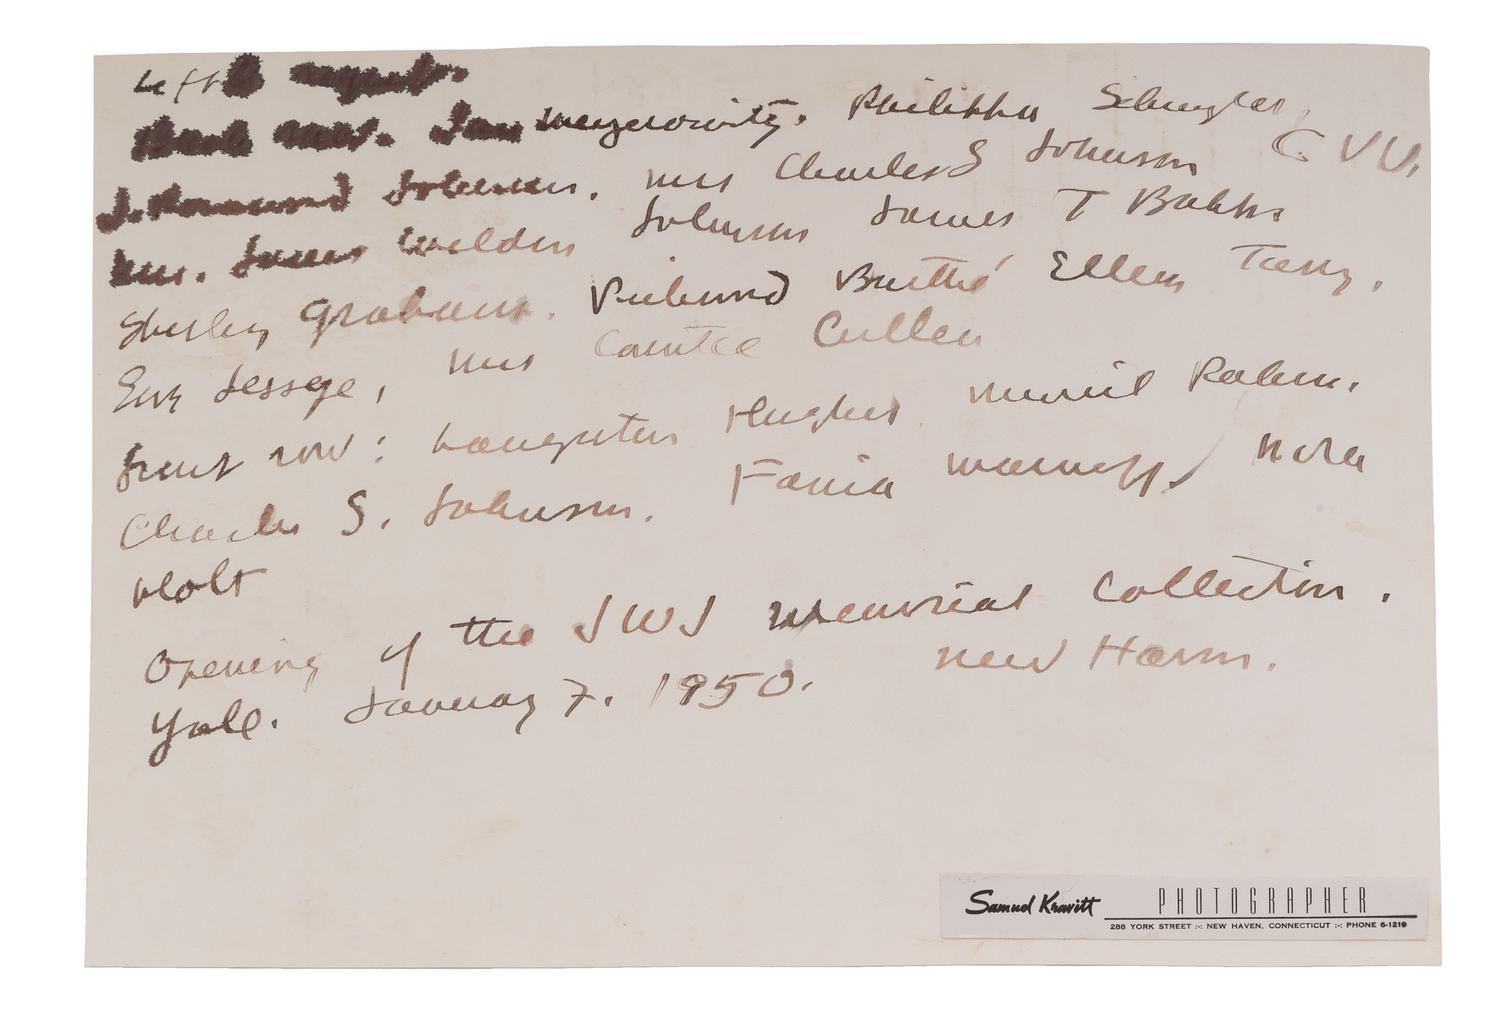 Left to right.
Back row. Jan Meyerowitz. Philippa Schuyler,
J. Rosamond Johnson. Mrs Charles S Johnson C VV.
Mrs. James Weldon Johnson James T Babb.
Shirley Graham. Richmond Barthé Ellen Tarry.
Eva Jessye, Mrs Countee Cullen
front row: Langston Hughes. Muriel Rahn.
Charles S. Johnson. Fania Marinoff, Nora
Holt
Opening of the JWJ Memorial Collection.
Yale. January 7. 1950. New Haven.
Samuel Kravitt PHOTOGRAPHER
288 YORK STREET :-: NEW HAVEN, CONNECTICUT :-: PHONE 6-1219